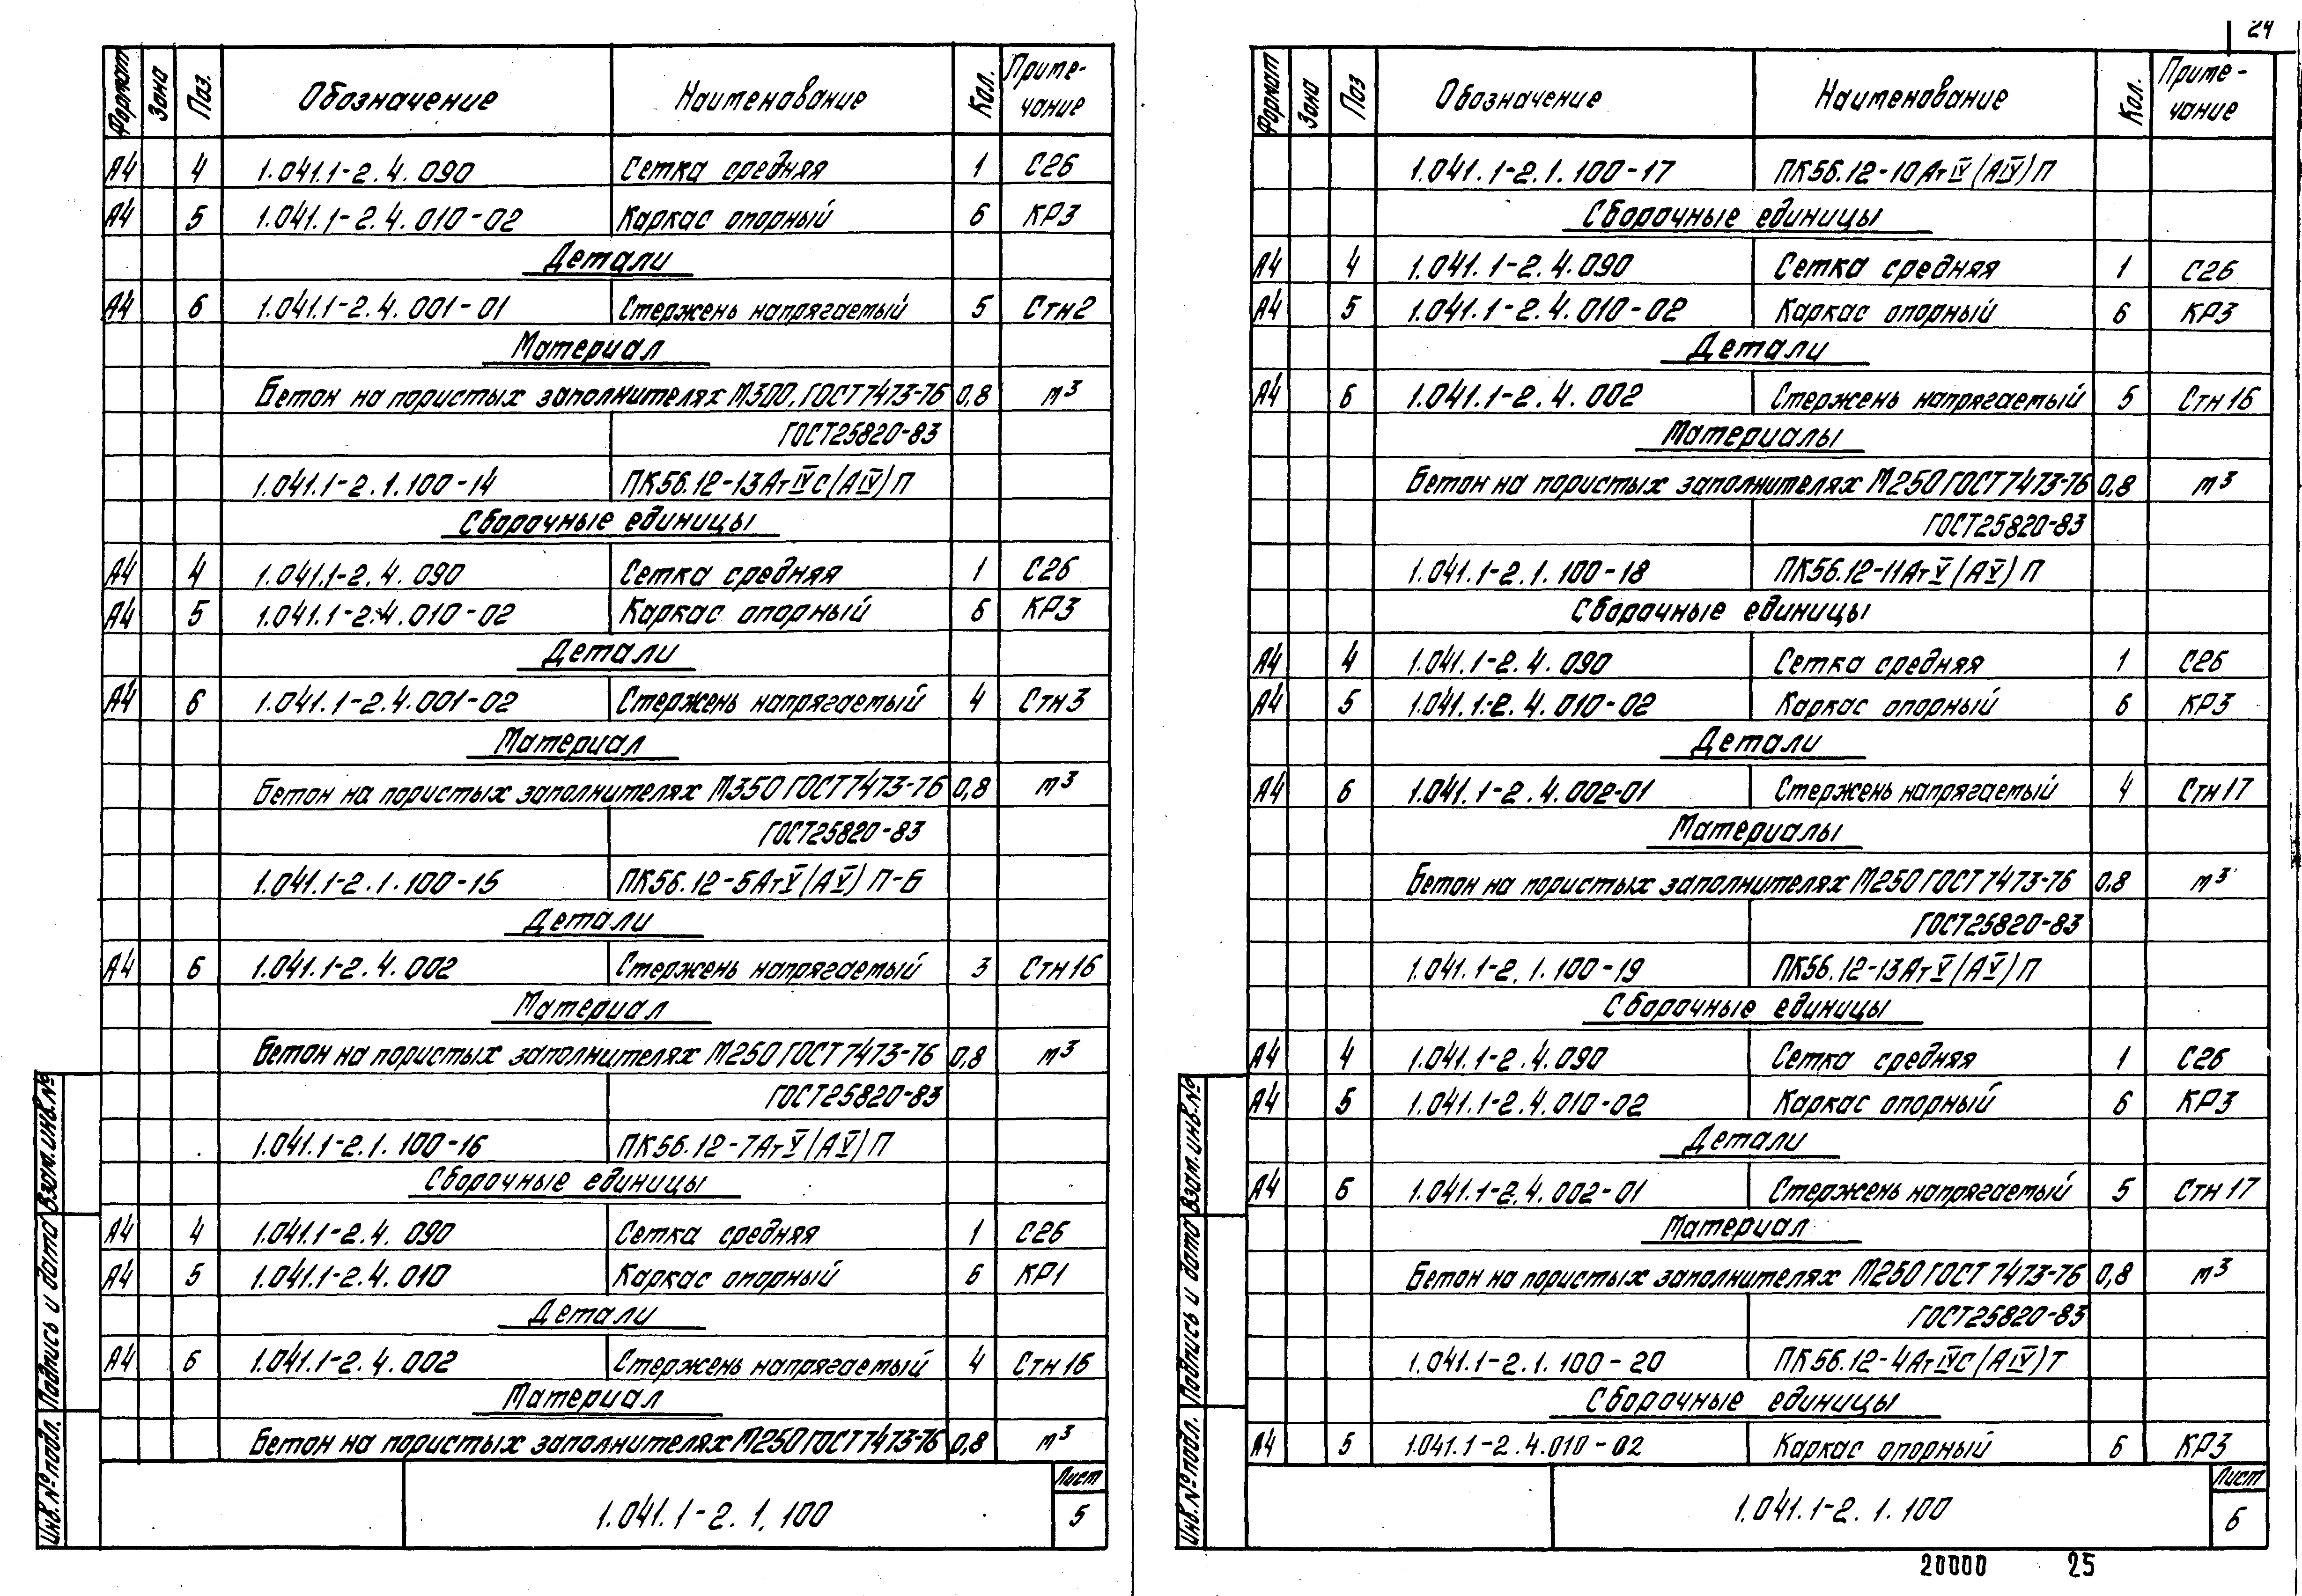 Формат Зона Поз. Обозначение Наименование Кол. Приме-
чание
А4 4 1.041.1-2.4.090 Сетка средняя 1 С26
А4 5 1.041.1-2.4.010-02 Каркас опорный 6 КР3
Детали
А4 6 1.041.1-2.4.001-01 Стержень напрягаемый 5 Стн2
Материал
Бетон на пористых заполнителях М300, ГОСТ7473-76 0,8 м³
ГОСТ25820-83
1.041.1-2.1.100-14 ПК56.12-13АтIVС(АIV)П
Сборочные единицы
А4 4 1.041.1-2.4.090 Сетка средняя 1 С26
А4 5 1.041.1-2.4.010-02 Каркас опорный 6 КР3
Детали
А4 6 1.041.1-2.4.001-02 Стержень напрягаемый 4 Стн3
Материал
Бетон на пористых заполнителях М350 ГОСТ7473-76 0,8 м³
ГОСТ25820-83
1.041.1-2.1.100-15 ПК56.12-5АтV(АV)П-Б
Детали
А4 6 1.041.1-2.4.002 Стержень напрягаемый 3 Стн16
Материал
Бетон на пористых заполнителях М250 ГОСТ7473-76 0,8 м³
ГОСТ25820-83
1.041.1-2.1.100-16 ПК56.12-7АтV(АV)П
Сборочные единицы
А4 4 1.041.1-2.4.090 Сетка средняя 1 С26
А4 5 1.041.1-2.4.010 Каркас опорный 6 КР1
Детали
А4 6 1.041.1-2.4.002 Стержень напрягаемый 4 Стн16
Материал
Бетон на пористых заполнителях М250 ГОСТ7473-76 0,8 м³
Инв.№ подл. Подпись и дата Взам.инв.№
1.041.1-2.1.100
Лист
5
24
Формат Зона Поз Обозначение Наименование Кол. Приме-
чание
1.041.1-2.1.100-17 ПК56.12-10АтIV(АIV)П
Сборочные единицы
А4 4 1.041.1-2.4.090 Сетка средняя 1 С26
А4 5 1.041.1-2.4.010-02 Каркас опорный 6 КР3
Детали
А4 6 1.041.1-2.4.002 Стержень напрягаемый 5 Стн16
Материалы
Бетон на пористых заполнителях М250 ГОСТ7473-76 0,8 м³
ГОСТ25820-83
1.041.1-2.1.100-18 ПК56.12-11АтV(АV)П
Сборочные единицы
А4 4 1.041.1-2.4.090 Сетка средняя 1 С26
А4 5 1.041.1-2.4.010-02 Каркас опорный 6 КР3
Детали
А4 6 1.041.1-2.4.002-01 Стержень напрягаемый 4 Стн17
Материалы
Бетон на пористых заполнителях М250 ГОСТ7473-76 0,8 м³
ГОСТ25820-83
1.041.1-2.1.100-19 ПК56.12-13АтV(АV)П
Сборочные единицы
А4 4 1.041.1-2.4.090 Сетка средняя 1 С26
А4 5 1.041.1-2.4.010-02 Каркас опорный 6 КР3
Детали
А4 6 1.041.1-2.4.002-01 Стержень напрягаемый 5 Стн17
Материал
Бетон на пористых заполнителях М250 ГОСТ7473-76 0,8 м³
ГОСТ25820-83
1.041.1-2.1.100-20 ПК56.12-4АтIVС(АIV)Т
Сборочные единицы
А4 5 1.041.1-2.4.010-02 Каркас опорный 6 КР3
Инв.№ подл. Подпись и дата Взам.инв.№
1.041.1-2.1.100
Лист
6
20000 25